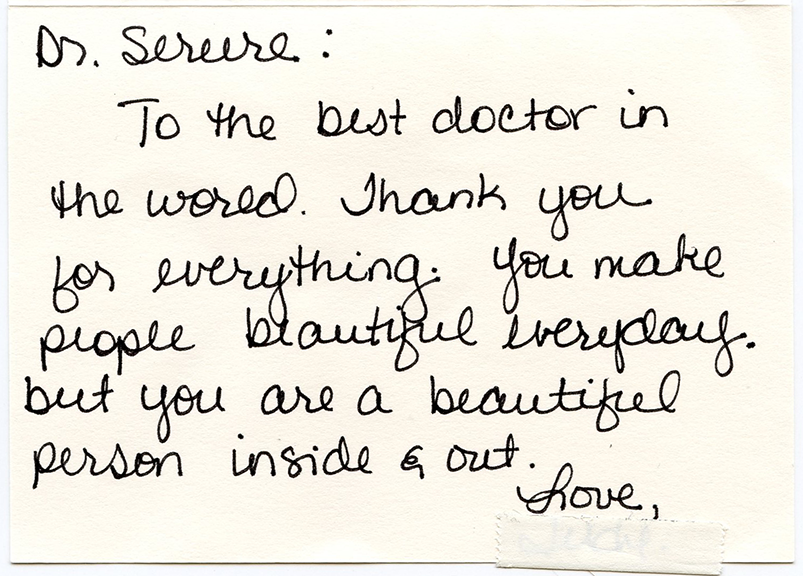 Dr. Sereure:
To the best doctor in
the world. Thank you
for everything. You make
people beautiful everyday.
but you are a beautiful
person inside & out.
Love,